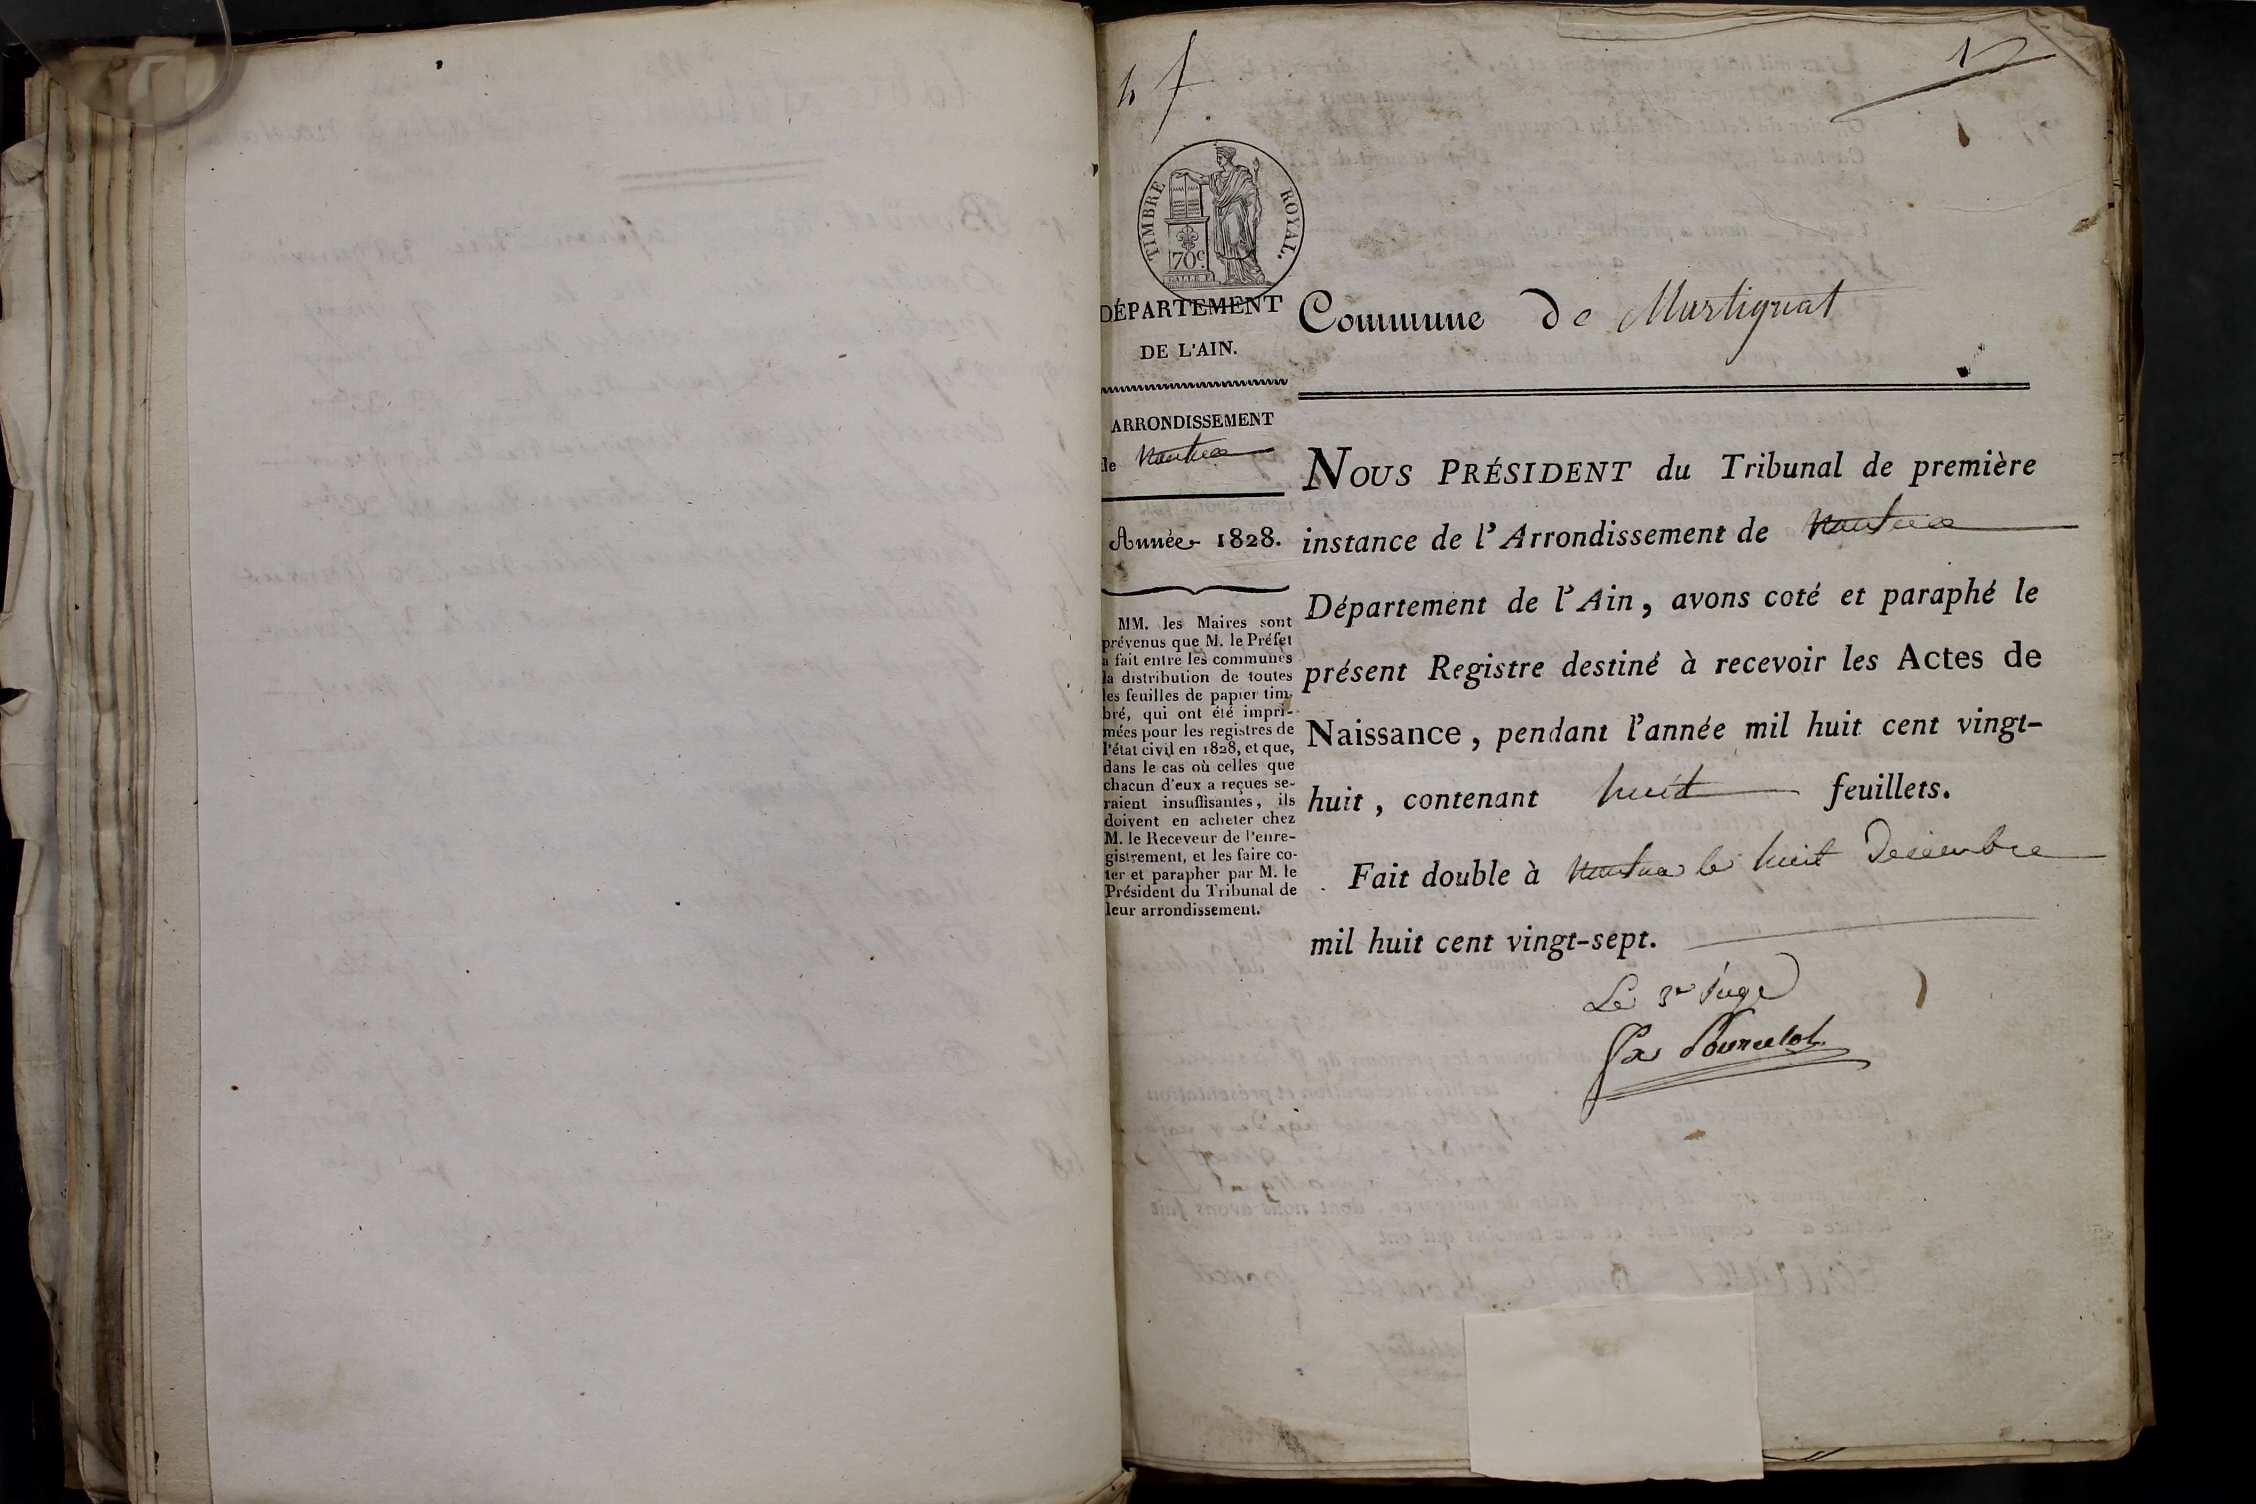 1
TIMBRE ROYAL.
70c
DÉPARTEMENT
DE L'AIN.
ARRONDISSEMENT
de Nantua
Année 1828.
MM. les Maires sont
prévenus que M. le Préfet
a fait entre les communes
la distribution de toutes
les feuilles de papier tim-
bré, qui ont été impri-
mées pour les registres de
l'état civil en 1828, et que,
dans le cas où celles que
chacun d'eux a reçues se-
raient insuffisantes, ils
doivent en acheter chez
M. le Receveur de l'enre-
gistrement, et les faire co-
ter et parapher par M. le
Président du Tribunal de
leur arrondissement.
Commune de Martignat
NOUS PRÉSIDENT du Tribunal de première
instance de l'Arrondissement de Nantua
Département de l'Ain, avons coté et paraphé le
présent Registre destiné à recevoir les Actes de
Naissance, pendant l'année mil huit cent vingt-
huit, contenant huit feuillets.
Fait double à Nantua le huit Decembre
mil huit cent vingt-sept.
Le 3e Juge